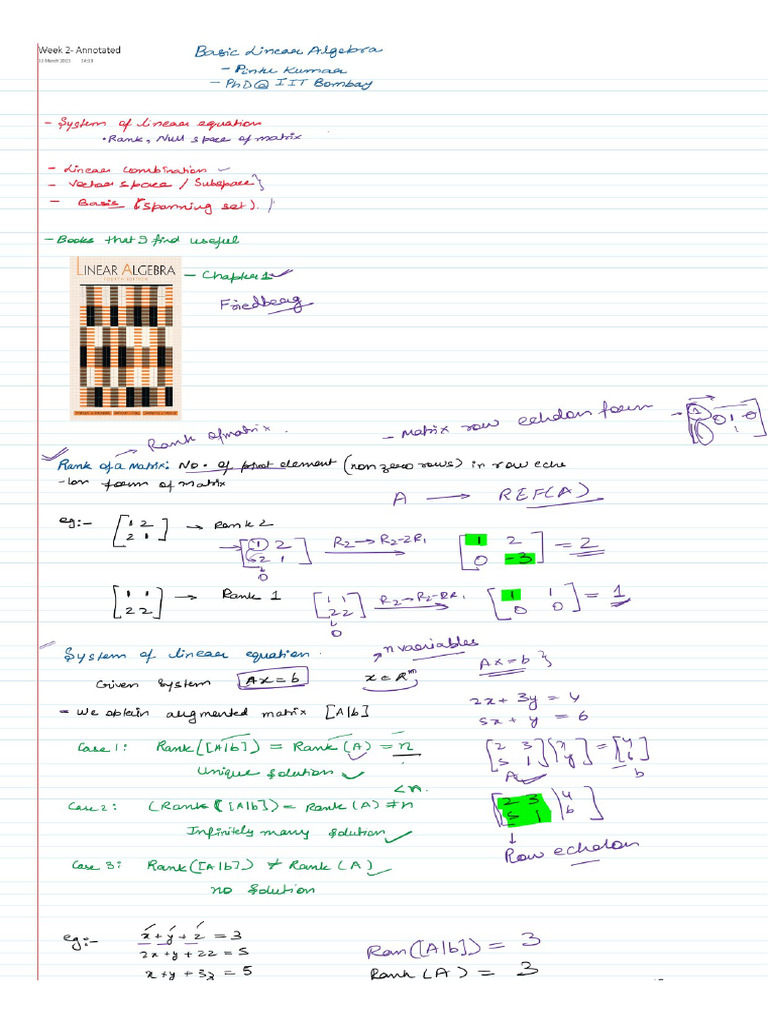 Week 2- Annotated
Basic Linear Algebra
- Pintu Kumar
- PhD@ IIT Bombay
- System of linear equation
• Rank, Null space of matrix
- Linear combination ✓
- Vector space / Subspace}
- Basis (spanning set).
- Books that I find useful
LINEAR ALGEBRA
FOURTH EDITION
- Chapter 1 ✓
Friedberg
→ Rank of matrix.
- Matrix row echelon form
Rank of a Matrix: No. of pivot element (non zero rows) in row eche
-lon form of matrix
A → REF(A)
eg:- [1 2; 2 1] → Rank 2
→ [1 2; 2 1] R2 → R2-2R1 [1 2; 0 -3] = 2
0
[1 1; 2 2] → Rank 1 [1 1; 2 2] R2 → R2-2R1 [1 1; 0 0] = 1
0
System of linear equation.
n variables
Given System Ax=b x ∈ R^m
Ax=b }
= We obtain augmented matrix [A|b]
2x + 3y = 4
5x + y = 6
Case 1: Rank([A|b]) = Rank(A) = n
Unique solution ✓
[2 3; 5 1] [x; y] = [4; 6]
A ✓ b
<n.
Case 2: (Rank([A|b]) = Rank(A) ≠ n
Infinitely many solution ✓
[2 3 | 4; 5 1 | 6]
↓
Row echelon
Case 3: Rank([A|b]) ≠ Rank(A) ✓
no solution
eg:- x + y + z = 3
2x + y + 2z = 5
x + y + 3z = 5
Ran([A|b]) = 3
Rank(A) = 3